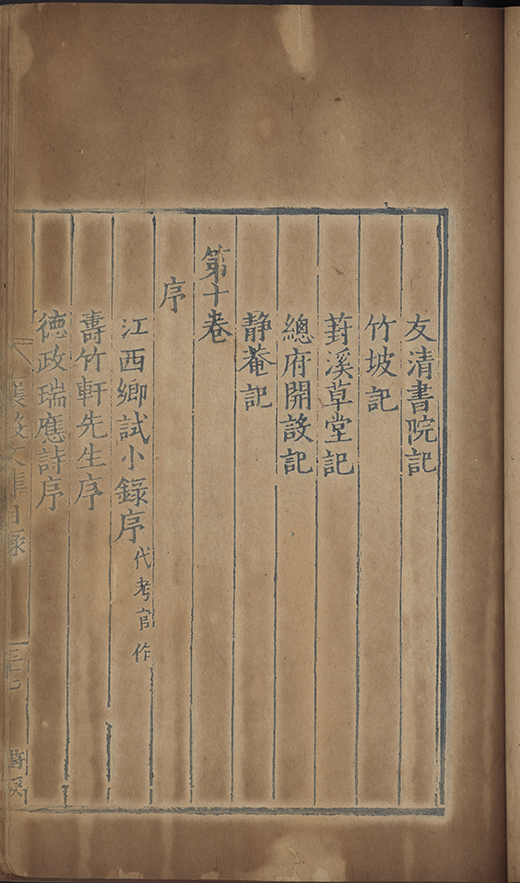 友清書院記
竹坡記
葑溪草堂記
總府開設記
静菴記
第十卷
序
江西鄉試小錄序代考官作
壽竹軒先生序
德政瑞應詩序
襄毅文集目録